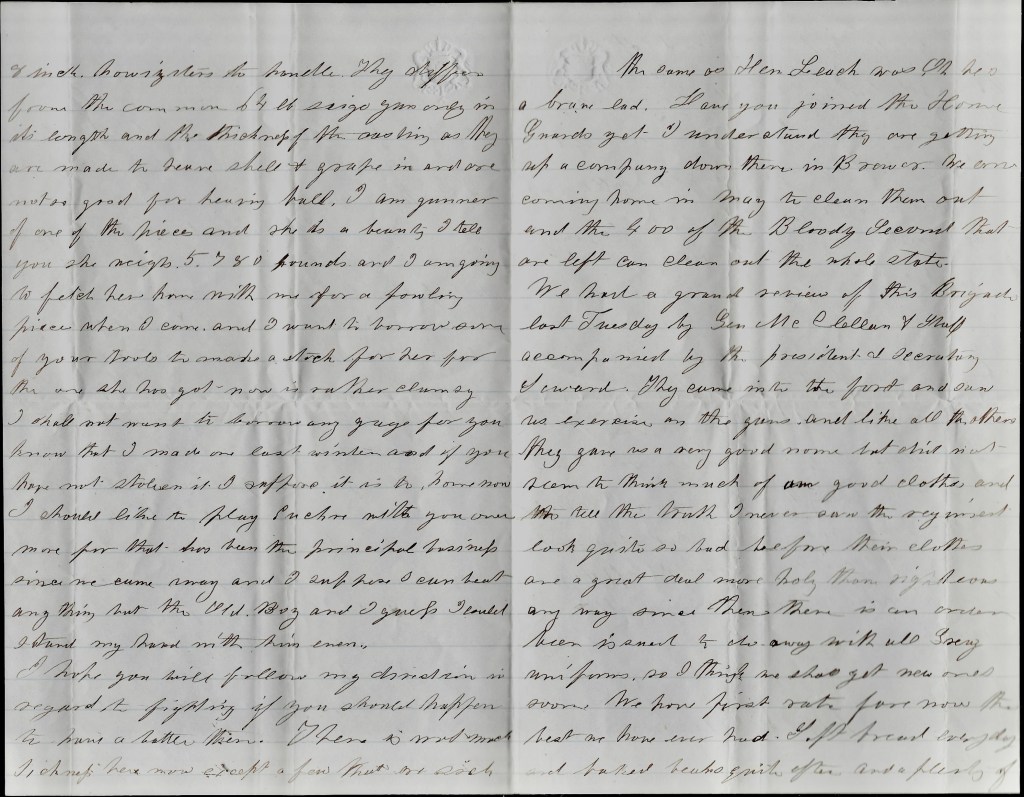 8 inch. howizters to handle. They differ
from the common 64 lb seige gun only in
its length and the thickness of the casting as they
are made to heave shell & grape in and are
not so good for heaving ball. I am gunner
of one of the pieces and she is a beauty I tell
you she weighs 5.780 pounds and I am going
to fetch her home with me for a fowling
piece when I come. and I want to borrow some
of your tools to make a stock for her for
the one she has got now is rather clumsy
I shall not want to borrow any gage for you
know that I made one last winter and if you
have not stolen it I suppose it is to home now
I should like to play Euchre with you once
more for that has been the principal business
since we came away and I suppose I can beat
any thing but the Old. Boy and I guess I could
stand my hand with him even.
I hope you will follow my direction in
regard to fighting if you should happen
to have a better them. There is not much
sickness here now except a few that are sick
the same as Hen Leach was Oh he is
a brave lad. Have you joined the Home
Guards yet I understand they are getting
up a company down there in Brewer. We are
coming home in May to clean them out
and the 400 of the Bloody Second that
are left can clean out the whole state.
We had a grand review of this Brigade
last Tuesday by Gen McClellan & Staff
accompanied by the president & secretary
Seward. They came into the fort and saw
us exercise on the guns. and like all the others
they gave us a very good name but did not
seem to think much of our good clothes and
to tell the truth I never saw the regiment
look quite so bad before their clothes
are a great deal more holy than righteous
any way since then there is an order
been issued to do away with all Grey
uniforms. so I think we shall get new ones
soon. We have first rate fare now the
best we have ever had. Soft bread everyday
and baked beans quite often and a plenty of